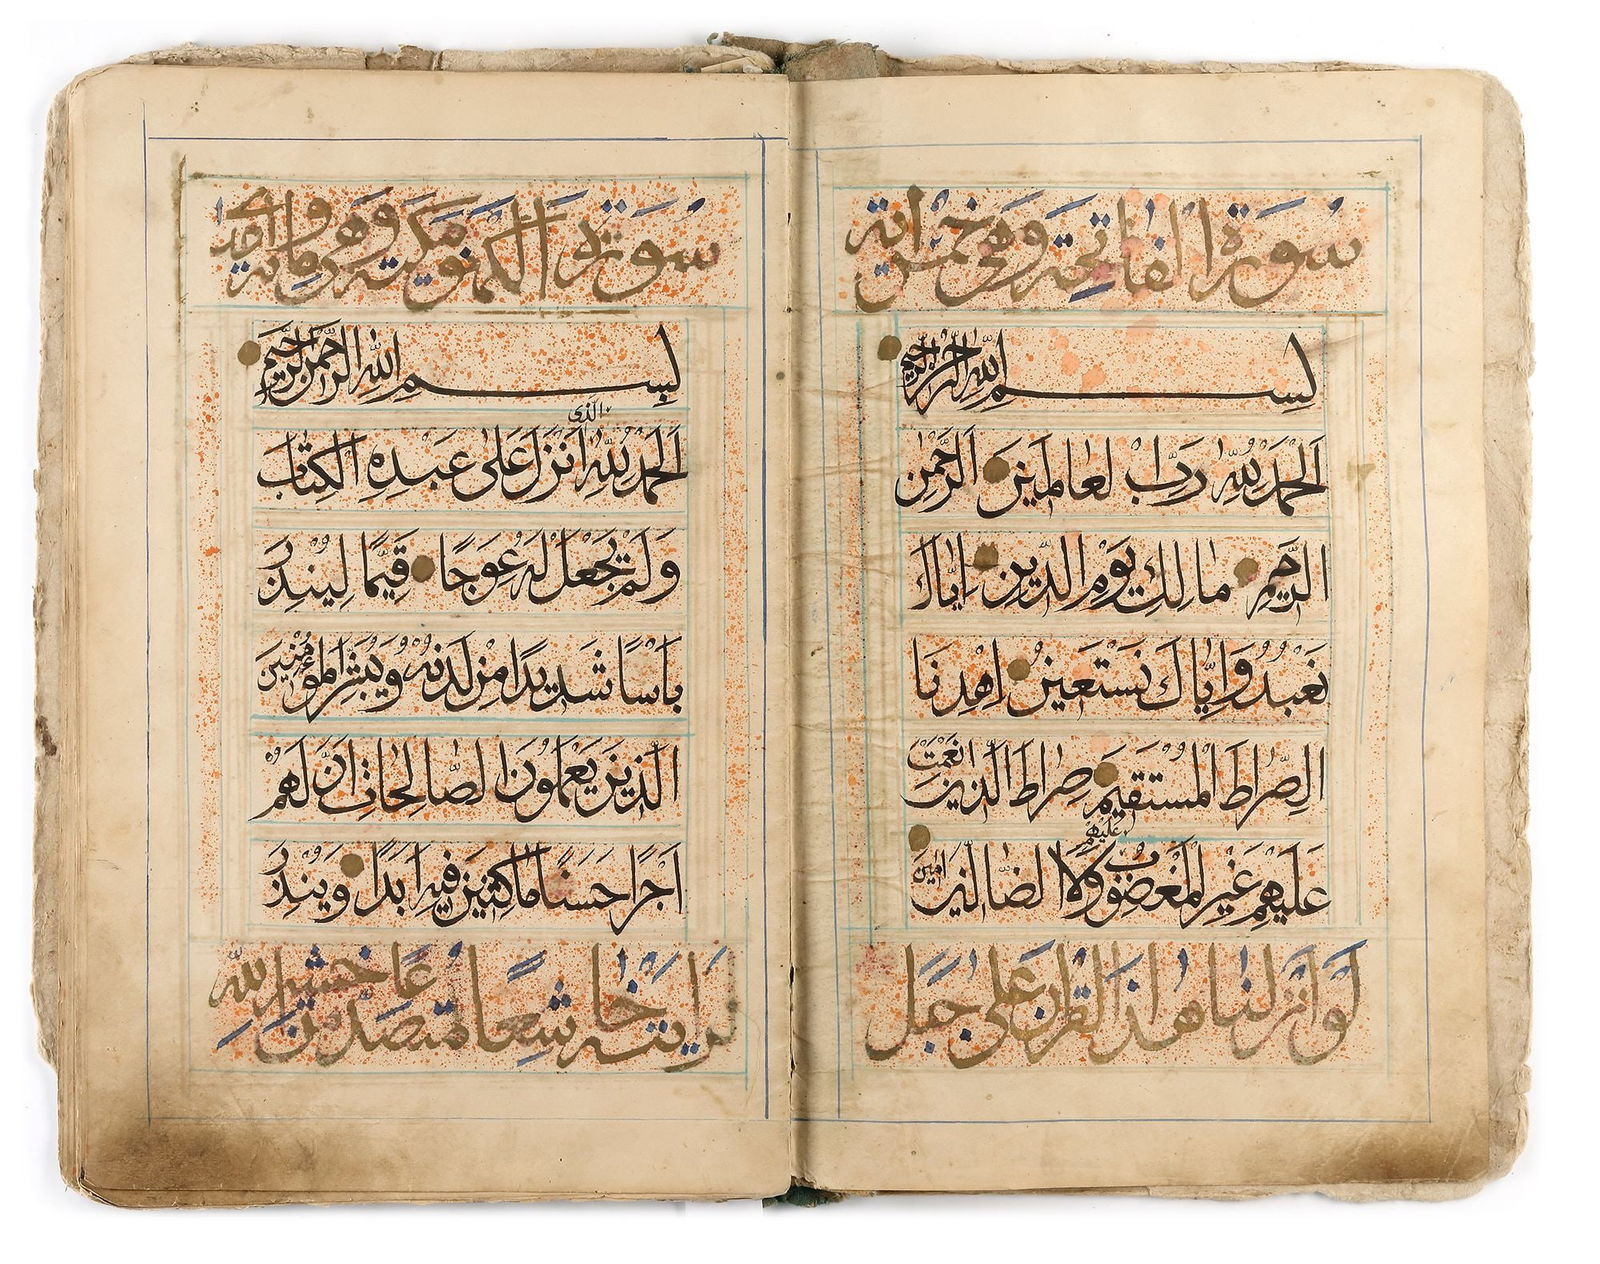 سورة الفاتحة وهي خمس اية
بسم الله الرحمن الرحيم
الحمد لله رب العالمين الرحمن
الرحيم مالك يوم الدين اياك
نعبد واياك نستعين اهدنا
الصراط المستقيم صراط الذين انعمت
عليهم غير المغضوب عليهم ولا الضالين امين
لو انزلنا هذا القران على جبل
سورة الكهف مكية وهي
بسم الله الرحمن الرحيم
الحمد لله الذى انزل على عبده الكتاب
ولم يجعل له عوجا قيما لينذر
باسا شديدا من لدنه ويبشر المؤمنين
الذين يعملون الصالحات ان لهم
اجرا حسنا ماكثين فيه ابدا وينذر
لرايته خاشعا متصدعا من خشية الله